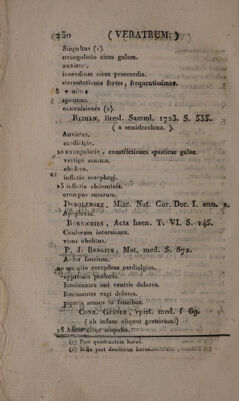 (250 ( VERATRUM. )
Singultus (1).
strangulatio circa gulam.
anxietas.
incendium circa praecordia.
sternutationes fortes, frequentissimae.
5 vomitus
spasmus.
convulsiones (2).
REIMAN, Bresl. Samml. 1723. S. 535.
( a semidrachma. ).
Anxietas.
cardialgia.
10 strangulatio, constrictiones spasticae gulae.
vertigo summa.
inflatio oesophagi.
15 inflatio abdominis.
crampus surarum.
DOBOLENSKY, Misc. Nat. Cur. Dec. I. ann. 2.
Apoplexia.
BORRICHIUS, Acta haen. T. VI. S. 145.
Oculorum intorsiones.
visus abolitus.
P. J. BERGIUS, Mat. med. S. 872.
Ardor faucium.
20 sensatio corrodens cardialgica.
oppressio pectoris.
lancinantes imi ventris dolores.
lancinantes vagi dolores.
piperis sensus in faucibus.
CONR. GESNER, epist. med. f 69.
( ab infuso aliquot granorum)
25 Ardor circa scapulas.
(1) Post quadrantem horae.
(2) post